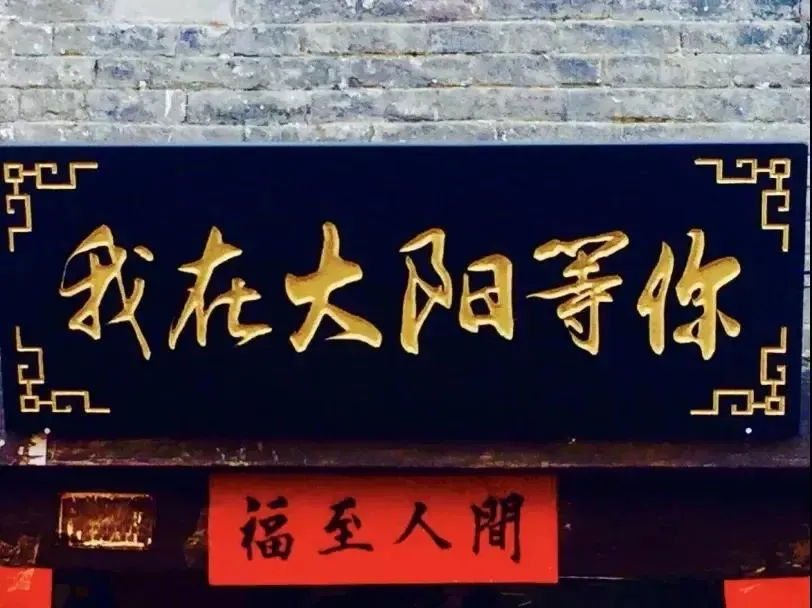 我在大阳等你
福至人間